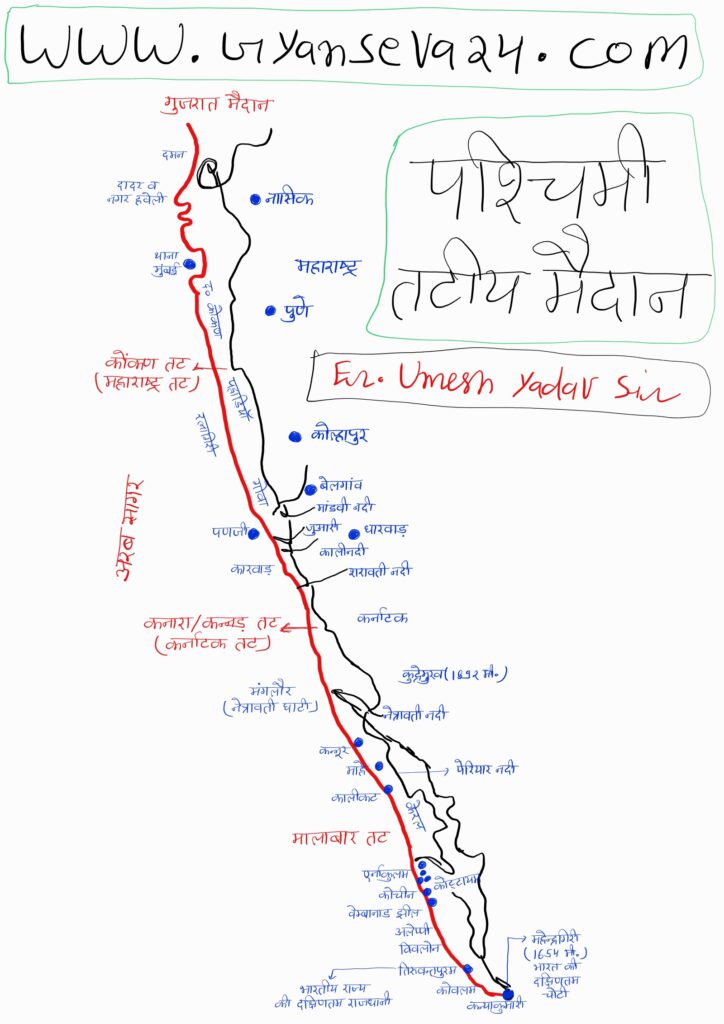 www.gyanseva24.com
गुजरात मैदान
दमन
दादर व
नगर हवेली
नासिक
पश्चिमी
तटीय मैदान
थाना
मुंबई
महाराष्ट्र
द० कोंकण
पुणे
Er. Umesh Yadav Sir
कोंकण तट
(महाराष्ट्र तट)
पहाड़ियाँ
रत्नागिरी
कोल्हापुर
अरब सागर
गोवा
बेलगांव
मांडवी नदी
पणजी
जुमारी
धारवाड़
कालीनदी
कारवाड़
शरावती नदी
कनारा/कन्नड़ तट
(कर्नाटक तट)
कर्नाटक
कुद्रेमुख(1892 मी.)
मंगलौर
(नेत्रावती घाटी)
नेत्रावती नदी
कन्नूर
माहे
पेरियार नदी
कालीकट
केरल
मालाबार तट
एर्नाकुलम
कोट्टायम
कोचीन
वेम्बानाड झील
अलेप्पी
क्विलोन
तिरुवन्तपुरम
महेन्द्रगिरी
(1654 मी.)
भारत की
दक्षिणतम
चोटी
भारतीय राज्य
की दक्षिणतम राजधानी
कोवलम
कन्याकुमारी